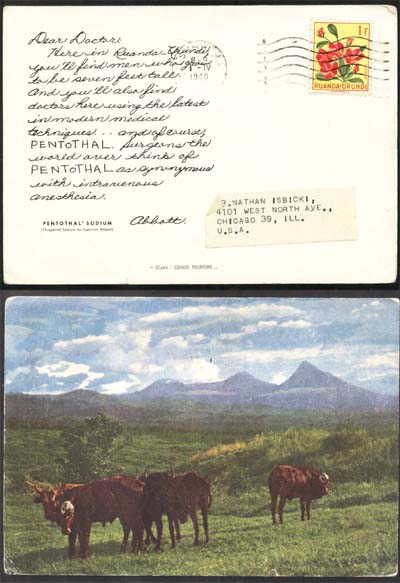 Dear Doctor:
Here in Ruanda Urundi
you'll find men who grow
to be seven feet tall.
And you'll also find
doctors here using the latest
in modern medical
techniques... and of course,
PENTOTHAL. Surgeons the
world over think of
PENTOTHAL as synonymous
with intravenous
anesthesia.
Abbott.
PENTOTHAL® SODIUM
(Thiopental Sodium for Injection, Abbott)
1960
1F
RUANDA-URUNDI
R.NATHAN ISBICKI,
4101 WEST NORTH AVE.,
CHICAGO 39, ILL.
U.S.A.